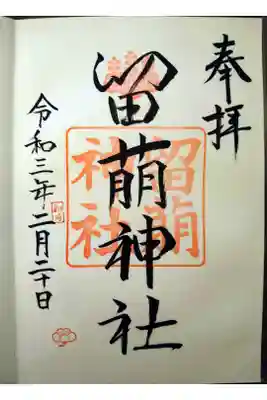 奉拝
留萌神社
留萌
神社
令和三年二月二十日